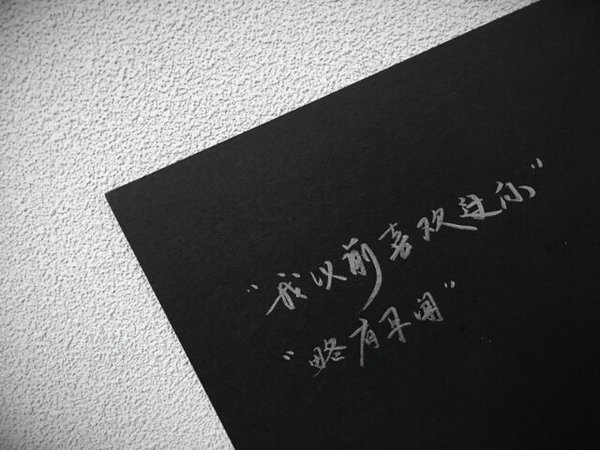 "我以前喜欢过你"
"略有耳闻"